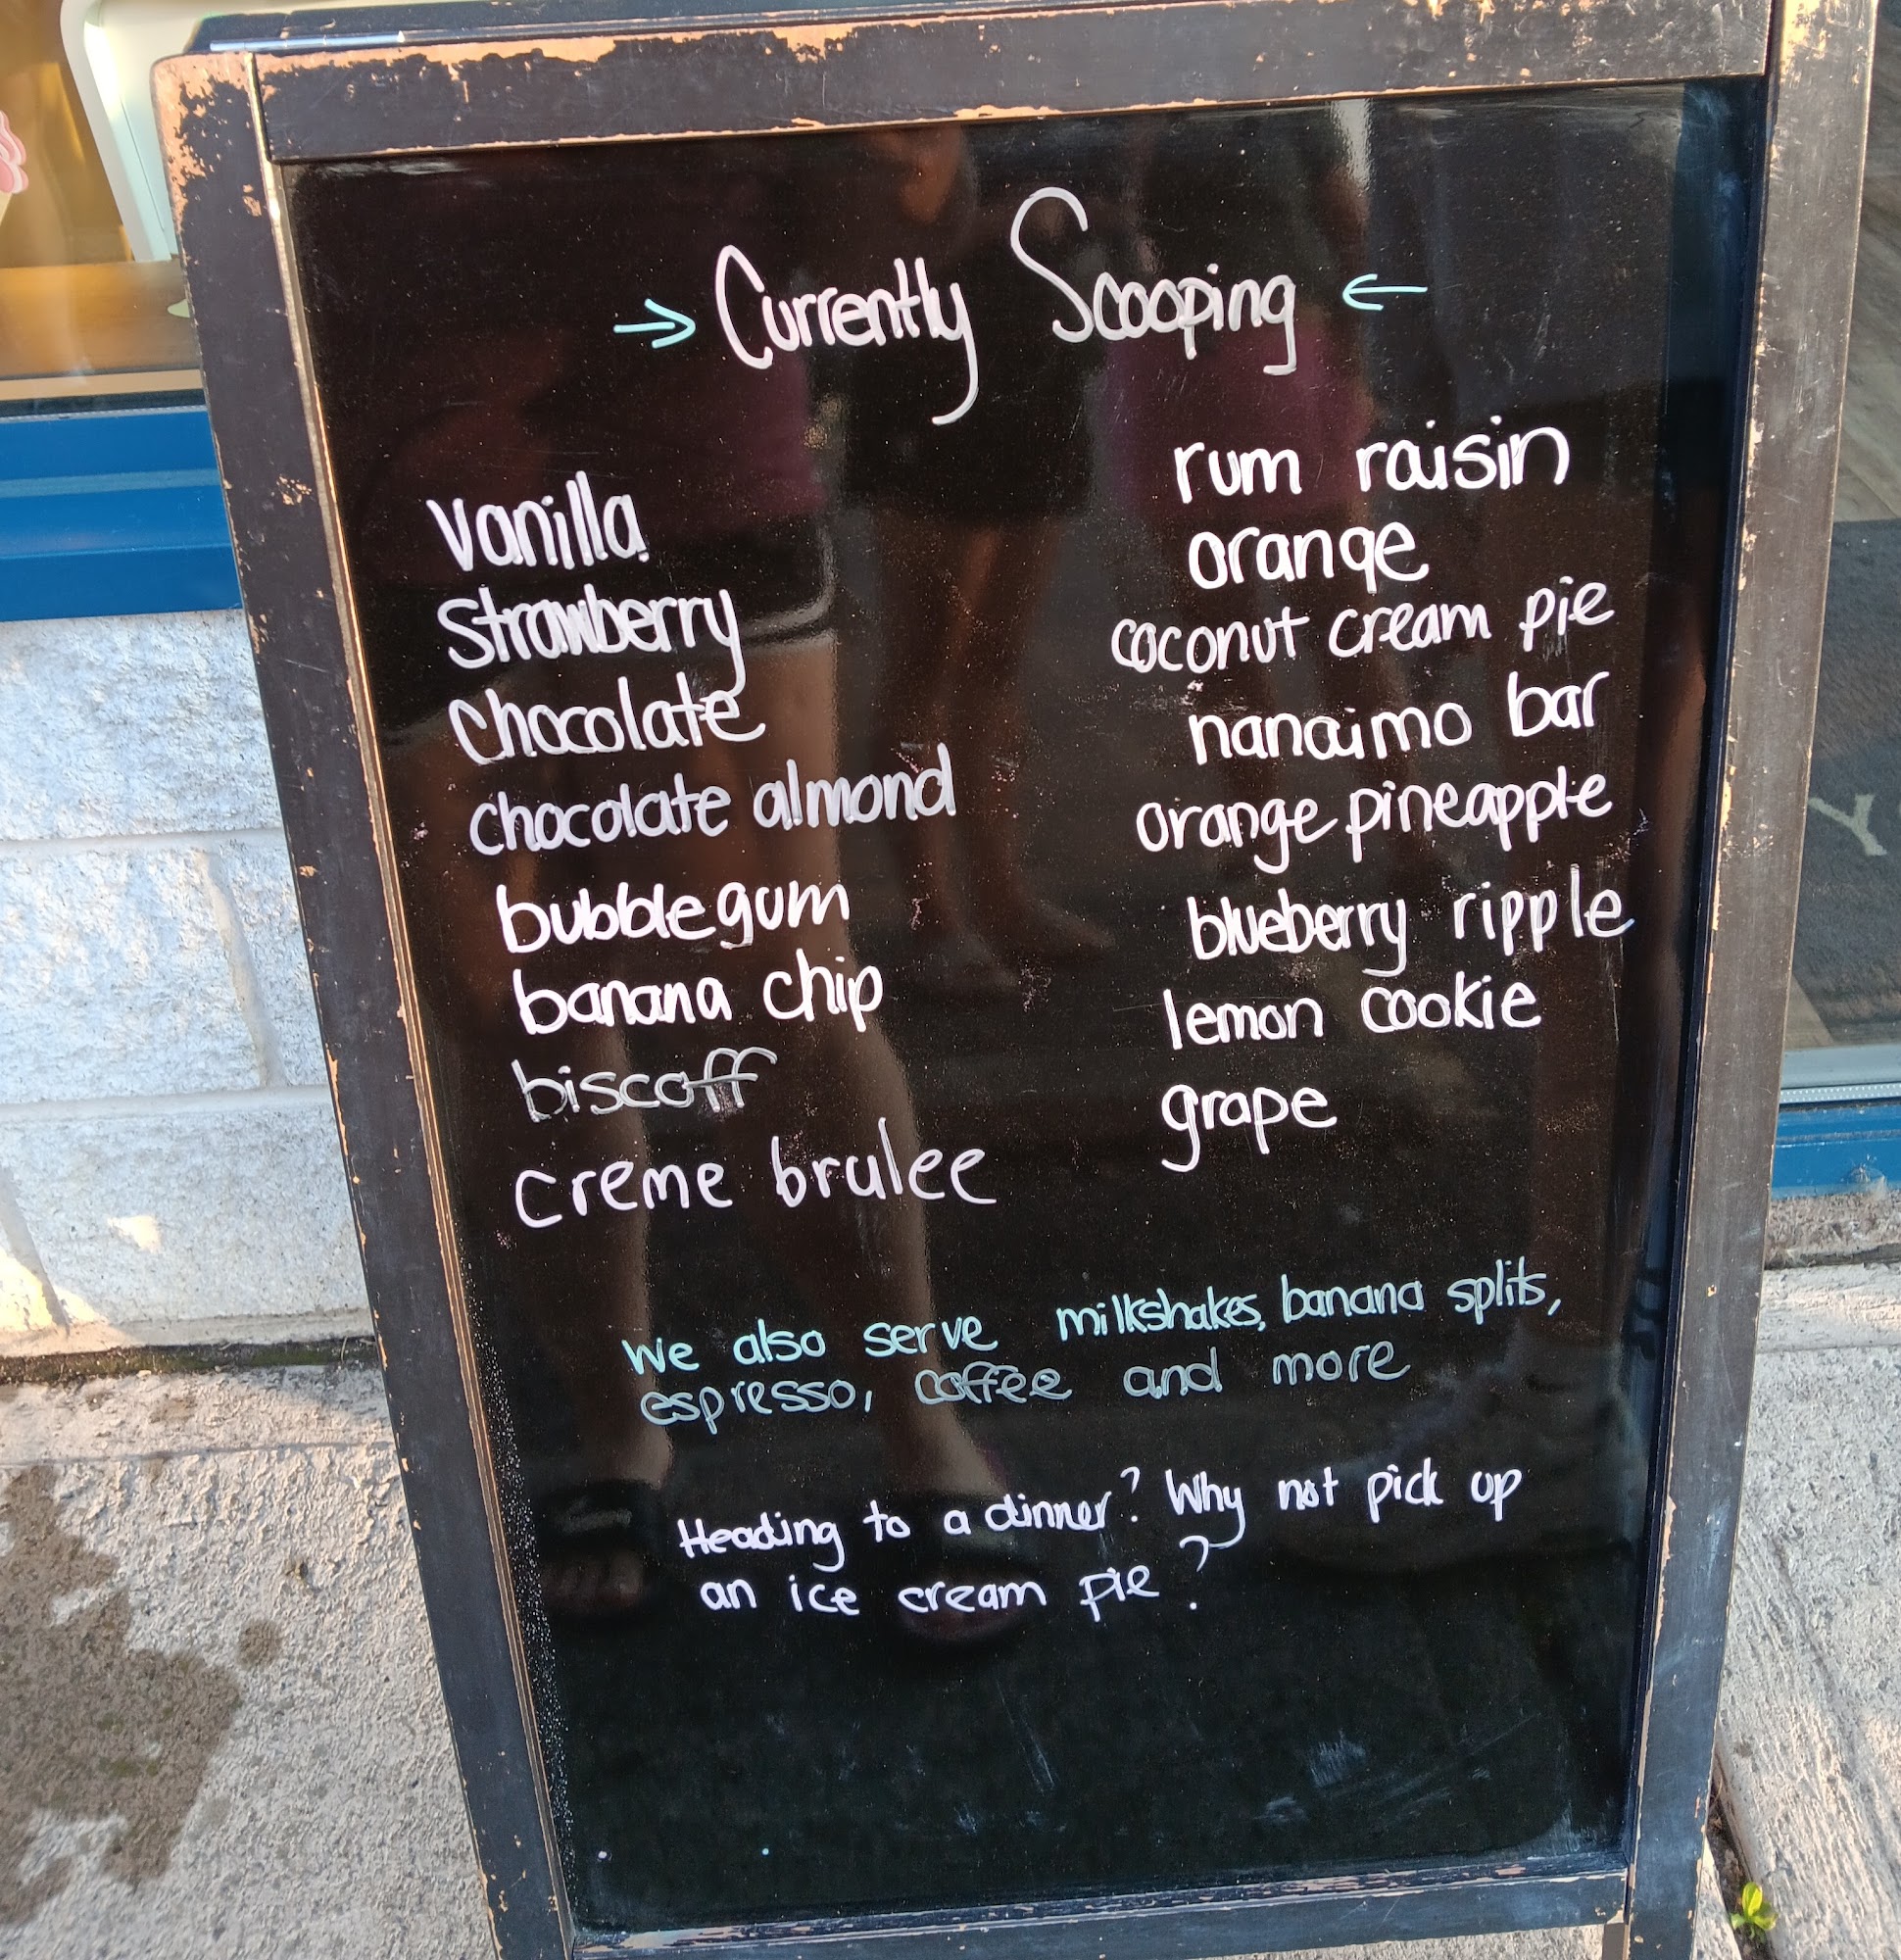 → Currently Scooping ←
vanilla
Strawberry
Chocolate
chocolate almond
bubblegum
banana chip
biscoff
creme brulee
rum raisin
orange
coconut cream pie
nanaimo bar
orange pineapple
blueberry ripple
lemon cookie
grape
We also serve milkshakes, banana splits,
espresso, coffee and more
Heading to a dinner? Why not pick up
an ice cream pie?
Y